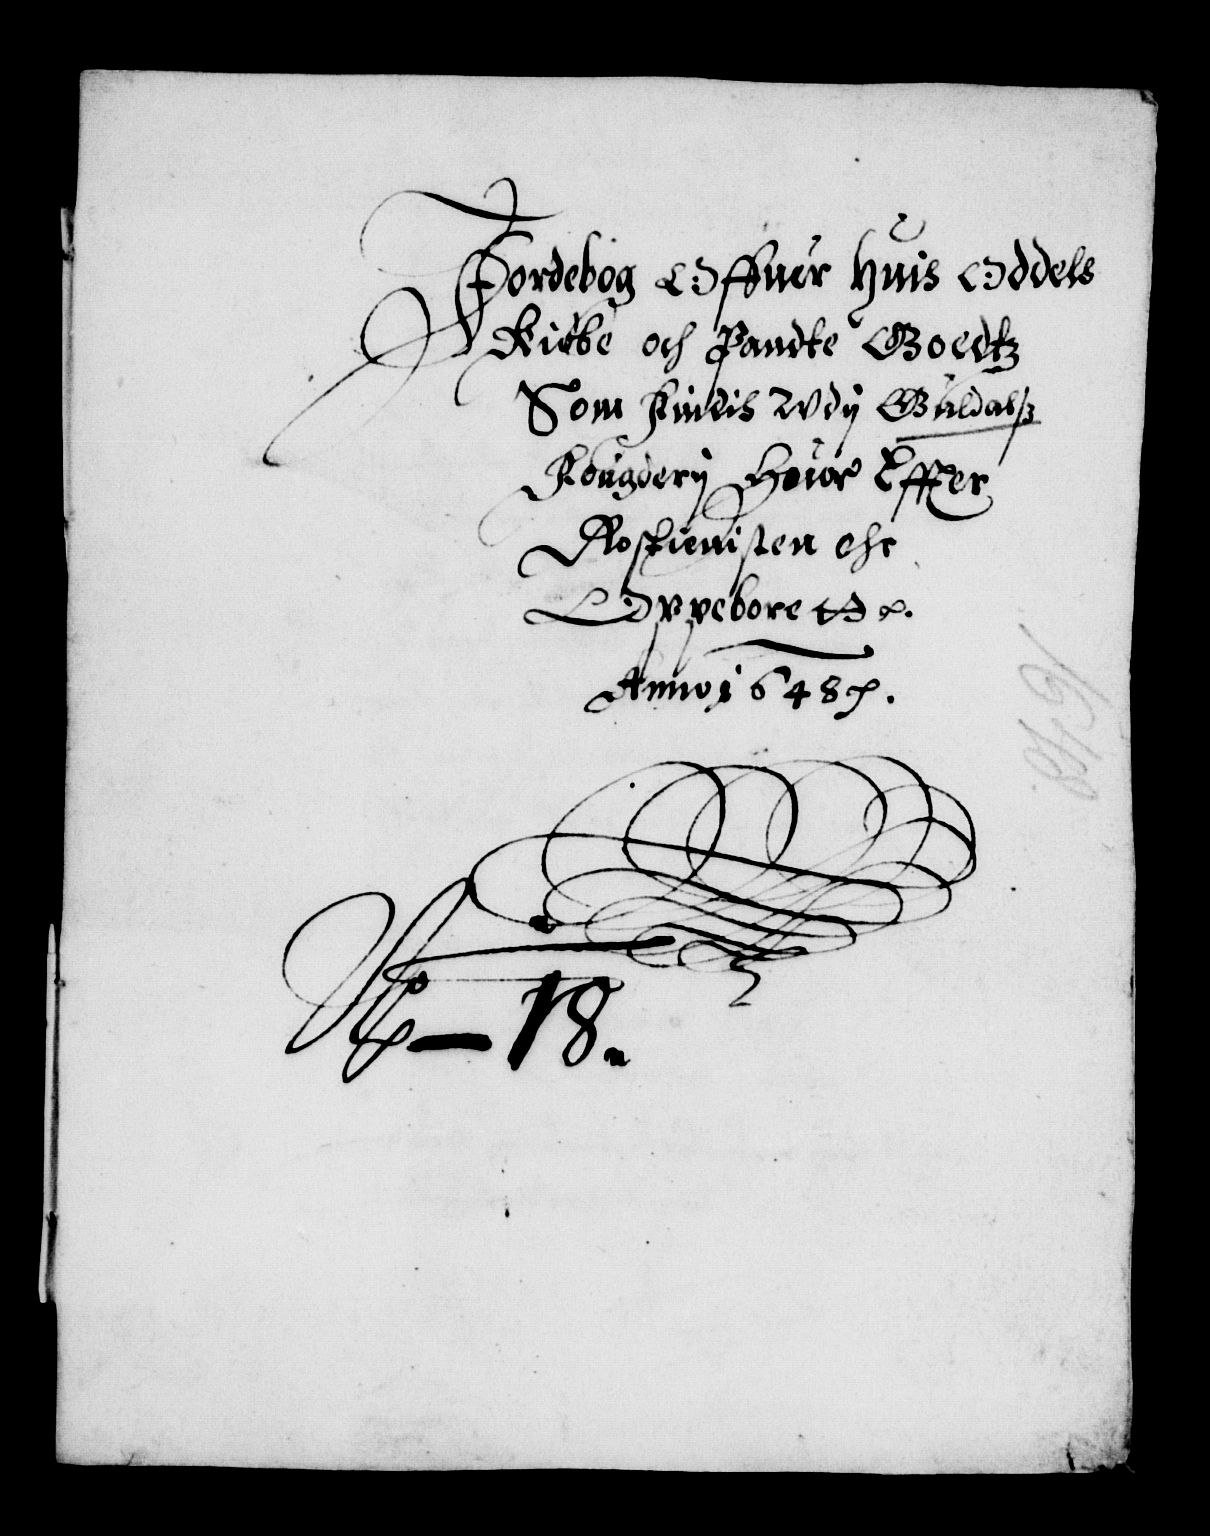 Jordebog Offuer Huis Oddels
Kiøbe och Pandte Goedtz
Som findis Udij Guldalß
Fougderij Huor Effter
Rostienisten ehr
Oppebore etc.
Anno 1648.
1648.
N: — 18.